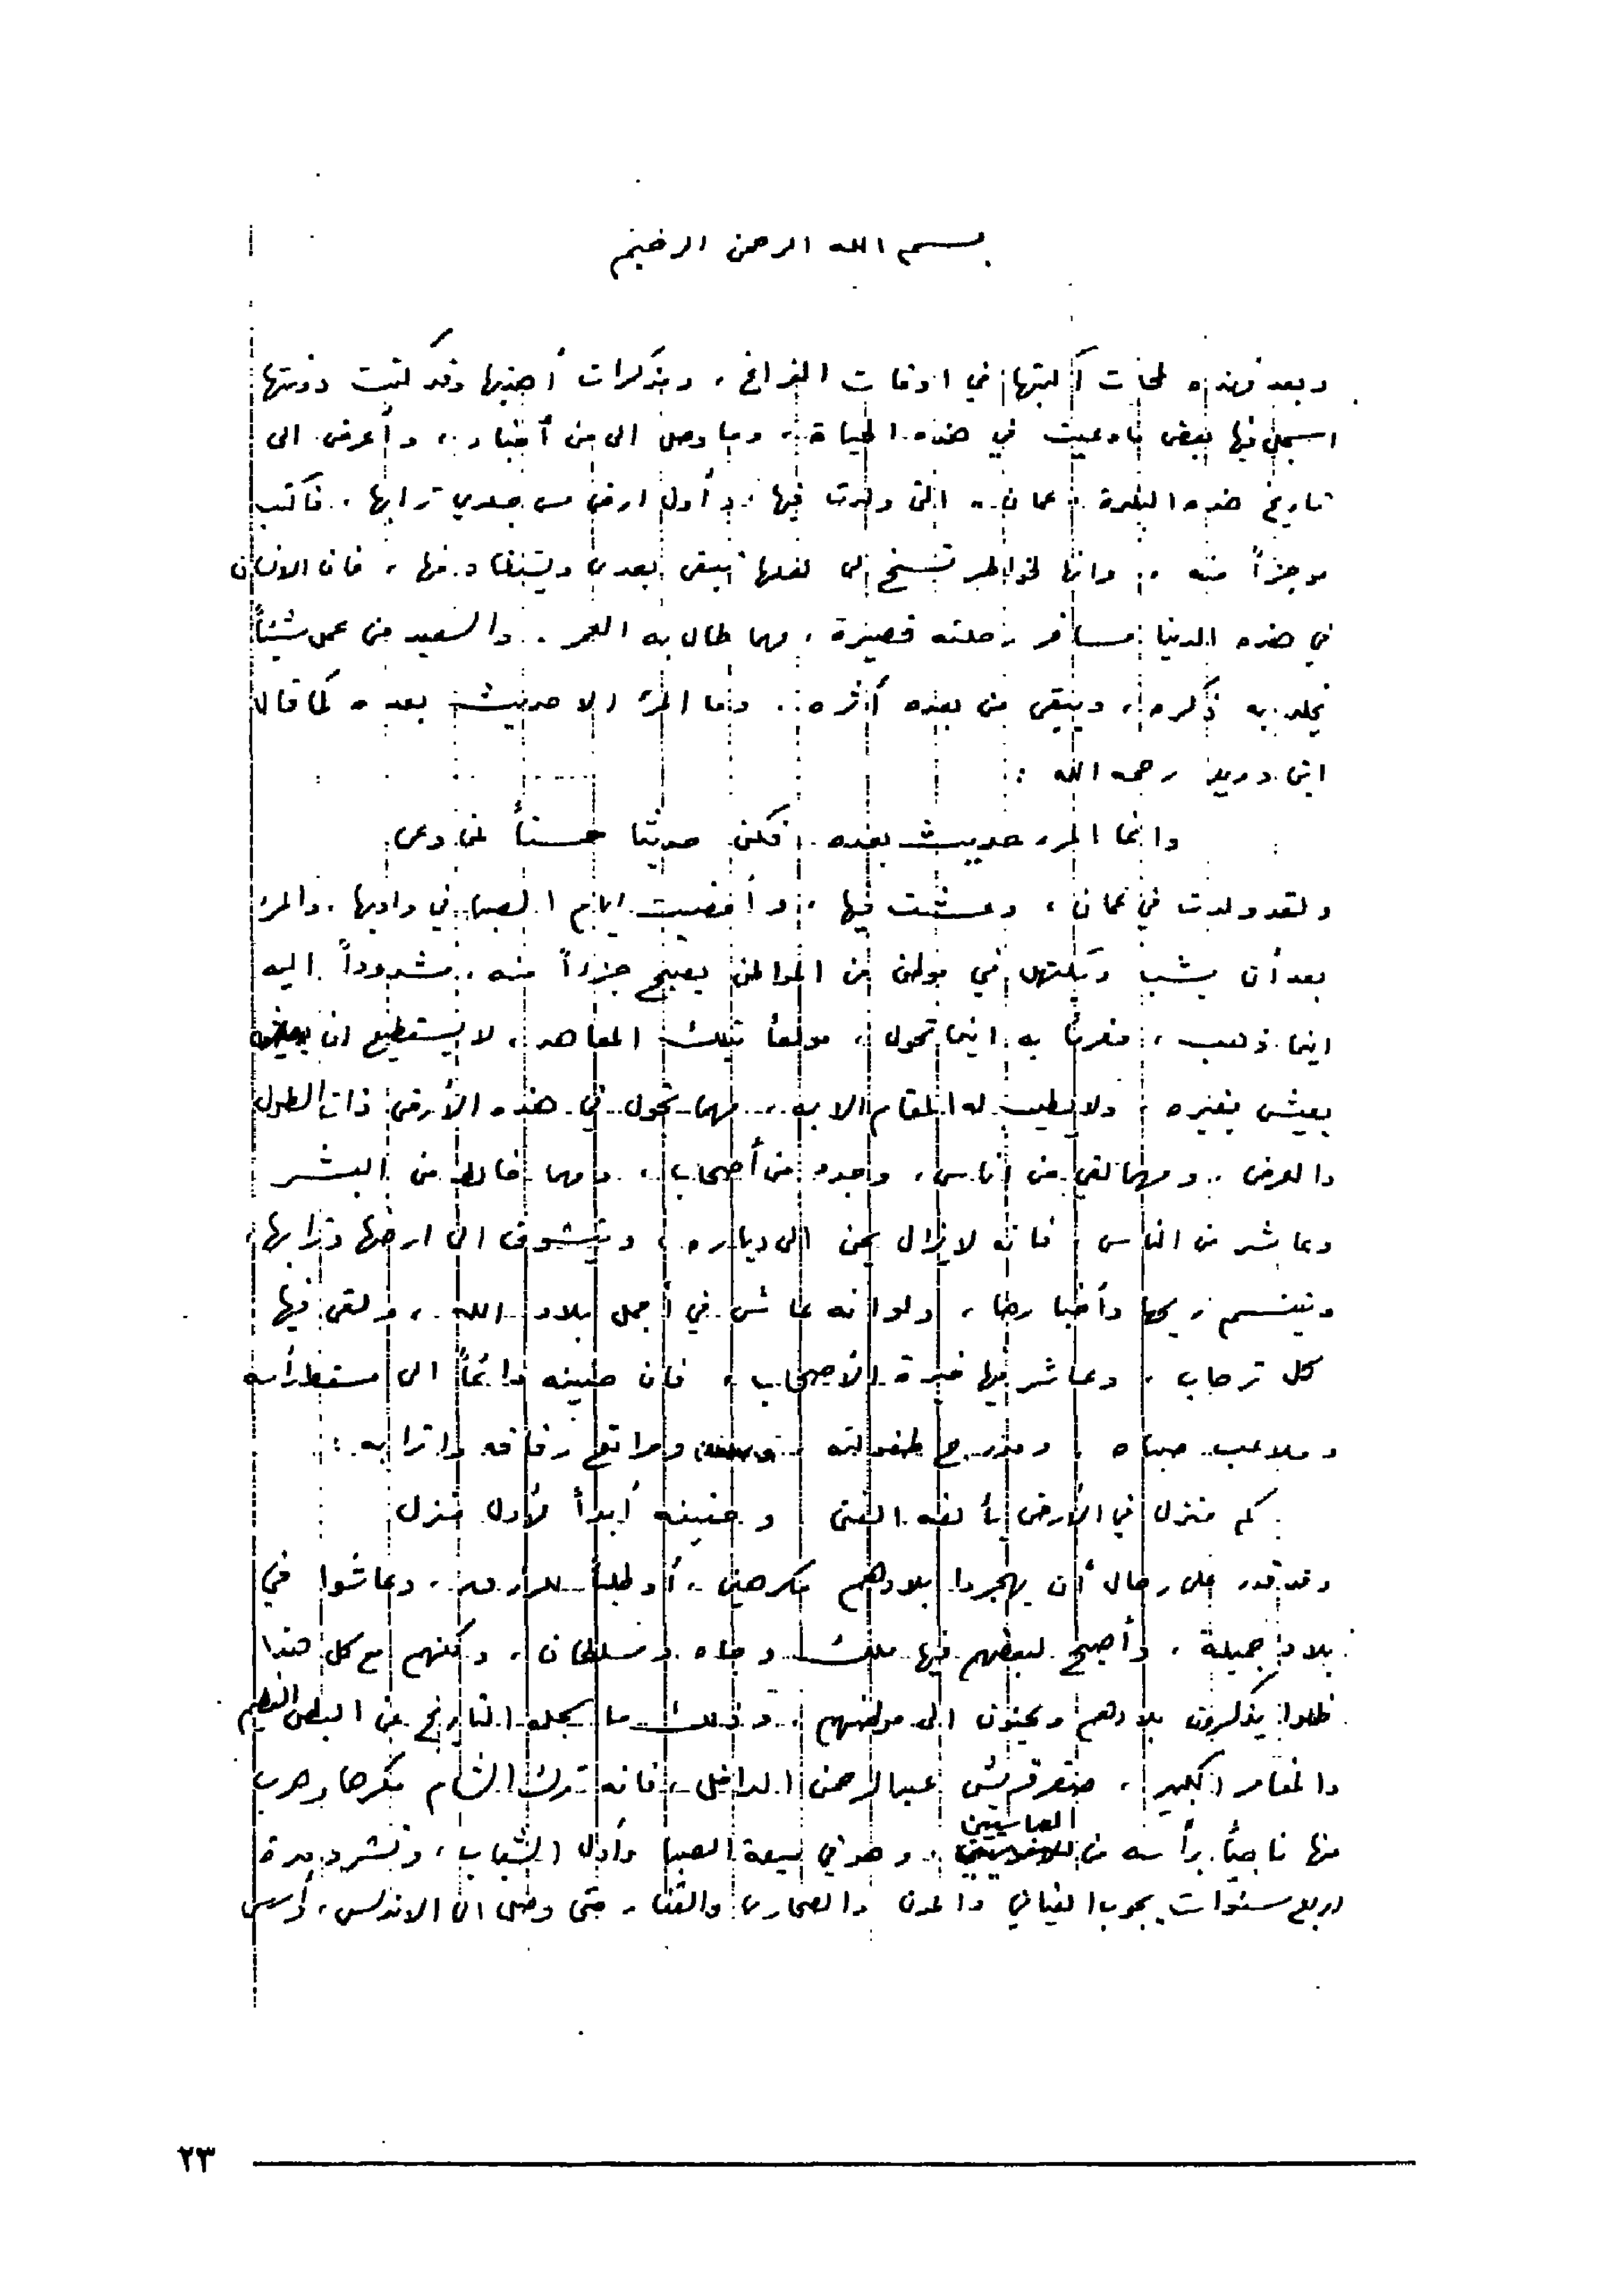 بسم الله الرحمن الرحيم
وبعد فهذه لمحات أكتبها في اوقات الفراغ ، ومذكرات أهذبها وقد كنت دونتها
اسجل فيها بعض ما وعيت في هذه الحياة ، وما وصل الى من أخبار ، وأعرض الى
تاريخ هذه البلدة . عمان .. التى ولدت فيها . وأول ارض مس جلدي ترابها . فأكتب
موجزاً منه .. وانها لخواطر تسنح لى لعلها تبقى بعدى ويستفاد منها ، فان الانسان
في هذه الدنيا مسافر رحلته قصيرة ، مهما طال به العمر .. والسعيد من عمل شيئاً
يخلد به ذكره ، ويبقى من بعده أثره .. وما المرء الا حديث بعده كما قال
ابن دريد رحمه الله :
وانما المرء حديث بعده . فكن حديثا حسناً لمن وعى
ولقد ولدت في عمان ، وعشت فيها ، وأمضيت ايام الصبا في واديها . والمرء
بعد أن يشب ويكتهل في موطن من المواطن يصبح جزءاً منه . مشدوداً اليه
اينما ذهب ، مغرماً به اينما تحول ، مولعاً بتلك المعاهد ، لا يستطيع ان
يعيش بغيره ، ولا يطيب له المقام الا به .. مهما تحول في هذه الأرض ذات الطول
والعرض .. ومهما لقي من اناس ، وجدد من أصحاب ، ومهما خالط من البشر
وعاشر من الناس ، فانه لا يزال يحن الى دياره ، ويتشوق الى ارضها وترابها ،
ويتنسم ريحها وأخبارها ، ولو انه عاش في أجمل بلاد الله ، ولقى فيها
كل ترحاب ، وعاشر فيها خيرة الأصحاب ، فان حنينه دائماً الى مسقط رأسه
وملاعب صباه ، ومدرج طفولته ، ومراتع رفاقه واترابه :
كم منزل في الأرض يألفه الفتى وحنينه أبداً لأول منزل
وقد قدر على رجال أن يهجروا بلادهم مكرهين ، أو طلباً للرزق ، وعاشوا في
بلاد جميلة ، وأصبح لبعضهم فيها ملك وجاه وسلطان ، ولكنهم مع كل هذا
ظلوا يذكرون بلادهم ويحنون الى موطنهم ، وذلك ما سجله التاريخ عن البطل العظيم
والمغامر الكبير ، صقر قريش عبد الرحمن الداخل ، فانه ترك الشام مكرها وهرب
منها ناجياً برأسه من العباسيين ، وهو في ميعة الصبا وأول الشباب ، وتشرد مدة
اربع سنوات يجوب الفيافي والمدن والصحارى والقفار حتى وصل الى الاندلس ، وأسس
٢٣